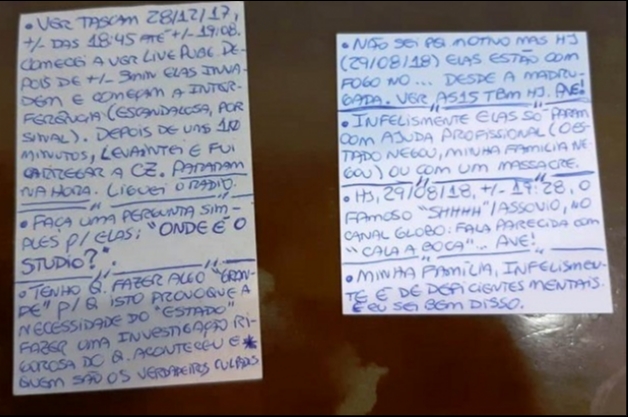 • VER TASCAM 28/12/17,
+/- DAS 18:45 ATÉ +/- 19:08.
COMECEI A VER LIVE PUBE DE-
POIS DE +/- 3MIN ELAS INVA-
DEM E COMEÇAM A INTER-
FERÊNCIA (ESCANDALOSA, POR
SINAL). DEPOIS DE UNS 10
MINUTOS, LEVANTEI E FUI
CARREGAR A CZ. PARARAM
NA HORA. LIGUEI O RÁDIO.
• FAÇA UMA PERGUNTA SIM-
PLES P/ ELAS: "ONDE É O
STUDIO?".
• TENHO Q. FAZER ALGO "GRAN-
DE" P/ Q ISTO PROVOQUE A
NECESSIDADE DO "ESTADO"
FAZER UMA INVESTIGAÇÃO RI-
GOROSA DO Q. ACONTECEU E
QUEM SÃO OS VERDADEIROS CULPADOS
• NÃO SEI POR MOTIVO MAS HJ
(29/08/18) ELAS ESTÃO COM
FOGO NO... DESDE A MADRU-
GADA. VER AS15 TBM HJ. AVE!
• INFELISMENTE ELAS SÓ PARAM
COM AJUDA PROFISSIONAL (O ES-
TADO NEGOU, MINHA FAMÍLIA NE-
GOU) OU COM UM MASSACRE.
• HJ, 29/08/18, +/- 17:28, O
FAMOSO "SHHHH"/ASSOVIO, NO
CANAL GLOBO: FALA PARECIDA COM
"CALA A BOCA"... AVE!
• MINHA FAMÍLIA, INFELISMEN-
TE É DE DEFICIENTES MENTAIS.
E EU SEI BEM DISSO.